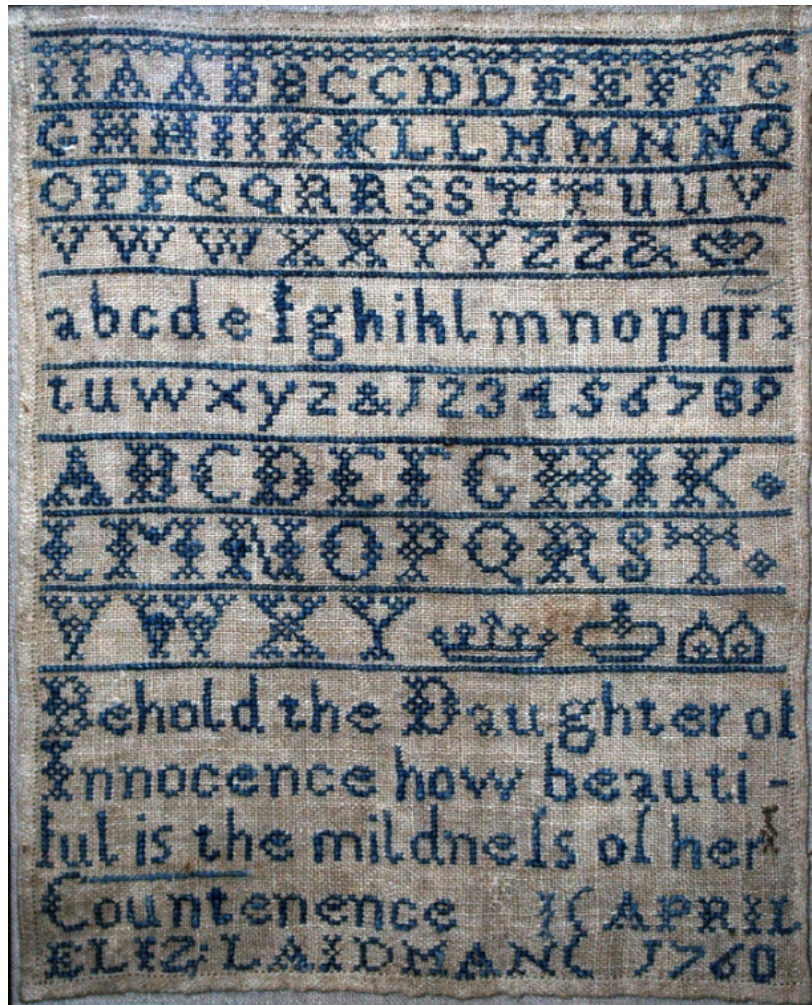 I I A A B B C C D D E E F F G
G H H I I K K L L M M N N O
O P P Q Q R R S S T T U U V
V W W X X Y Y Z Z &
a b c d e f g h i h l m n o p q r s
t u w x y z & 1 2 3 4 5 6 7 8 9
A B C D E F G H I K
L M N O P Q R S T
V W X Y
Behold the Daughter of
Innocence how beauti-
ful is the mildneſs of her
Countenence APRIL
ELIZ; LAIDMAN 1760